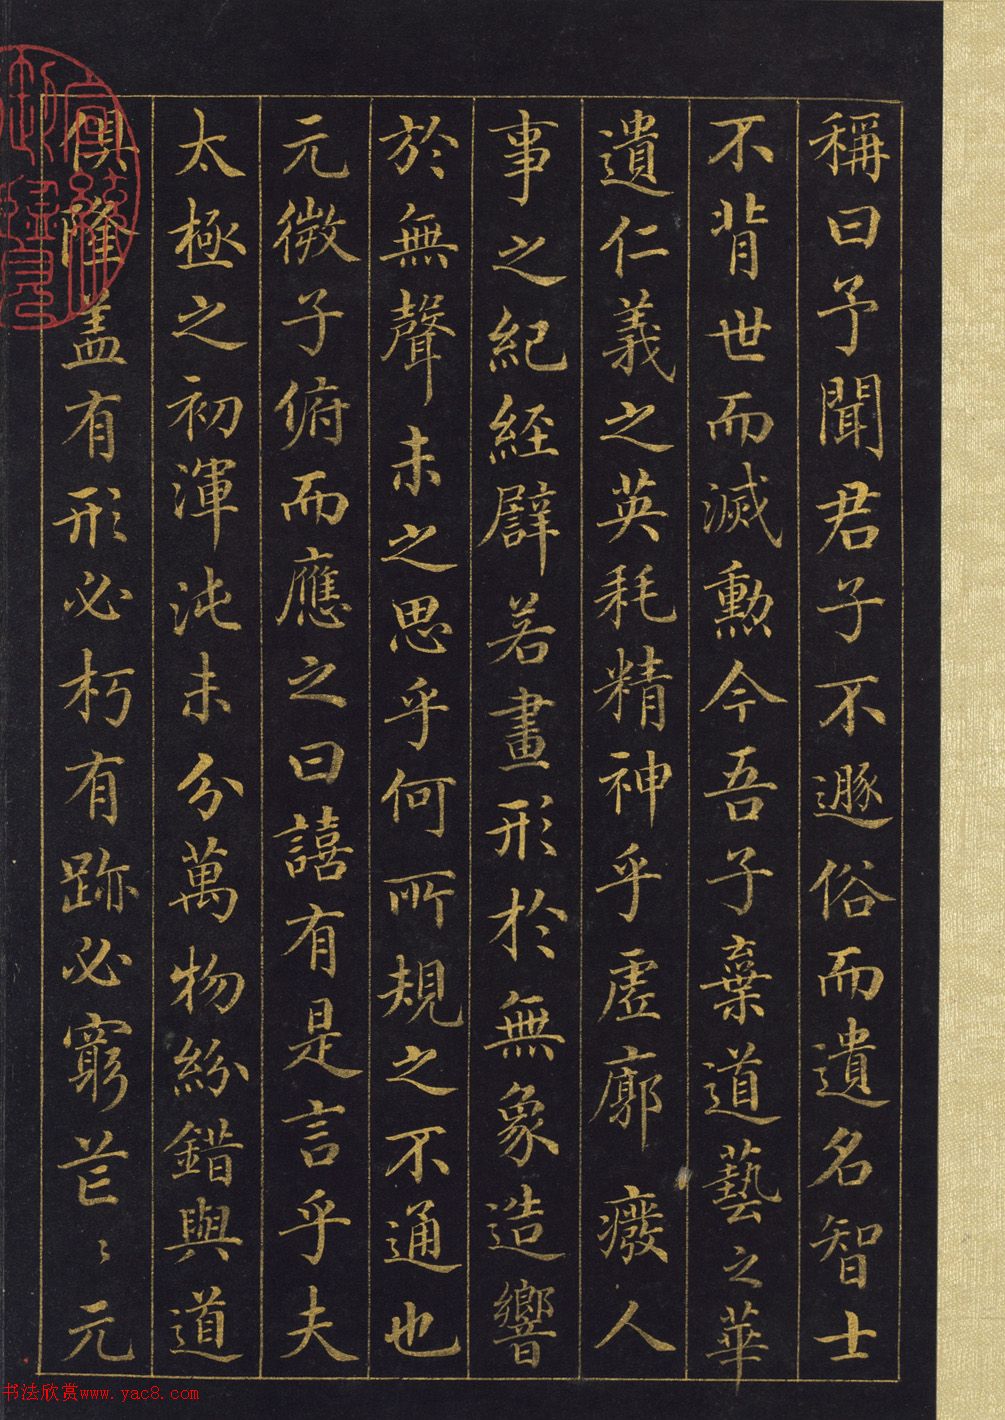 稱曰予聞君子不遯俗而遺名智士
不背世而滅勳今吾子棄道藝之華
遺仁義之英耗精神乎虛廓癈人
事之紀經譬若畫形於無象造響
於無聲未之思乎何所規之不通也
元微子俯而應之曰譆有是言乎夫
太極之初渾沌未分萬物紛錯與道
俱隆盖有形必朽有跡必窮芒〻元
书法欣赏www.yac8.com